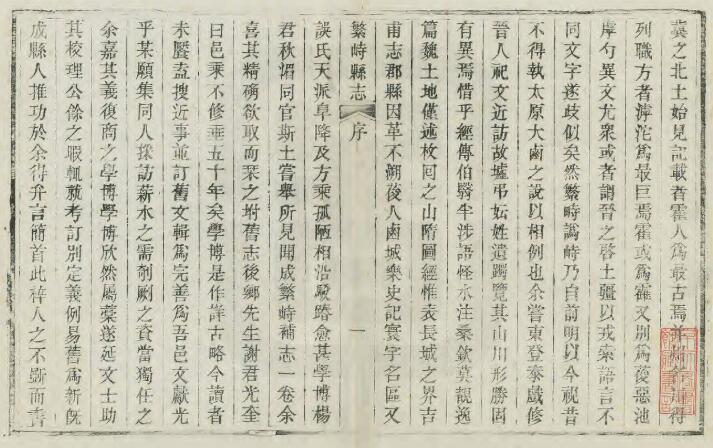 冀之北土始見記載者霍人爲最古焉
列職方者滹沱爲最巨焉霍或爲霍又別爲葰惡池
虖勺異文尤衆或者謂晉之啓土疆以戎索語言不
同文字遂歧似矣然繁畤譌峙乃自前明以今視昔
不得執太原大鹵之說以相例也余嘗東登泰戲修
晉人祀文近訪故墟弔妘姓遺躅覽其山川形勝因
有異焉惜乎經傳伯翳半涉語怪水注桑欽莫覩逸
篇魏土地僅述枚回之山隋圖經惟表長城之界吉
甫志郡縣因革不溯葰人鹵城樂史記寰宇名區又
繁峙縣志 序 一
誤氏天派阜降及方乘孤陋相沿駮蹐愈甚學博楊
君秋湄同官斯土嘗舉所見聞成繁峙補志一卷余
喜其精碻欲取而栞之坿舊志後鄉先生謝君光奎
曰邑乘不修垂五十年矣學博是作詳古略今讀者
未饜盍搜近事並訂舊文輯爲完善爲吾邑文獻光
乎某願集同人採訪薪水之需剞劂之資當獨任之
余嘉其義復商之學博學博欣然屬藁遂延文士助
其校理公餘之暇輒就考訂別定義例易舊爲新旣
成縣人推功於余得弁言簡首此梓人之不斲而書